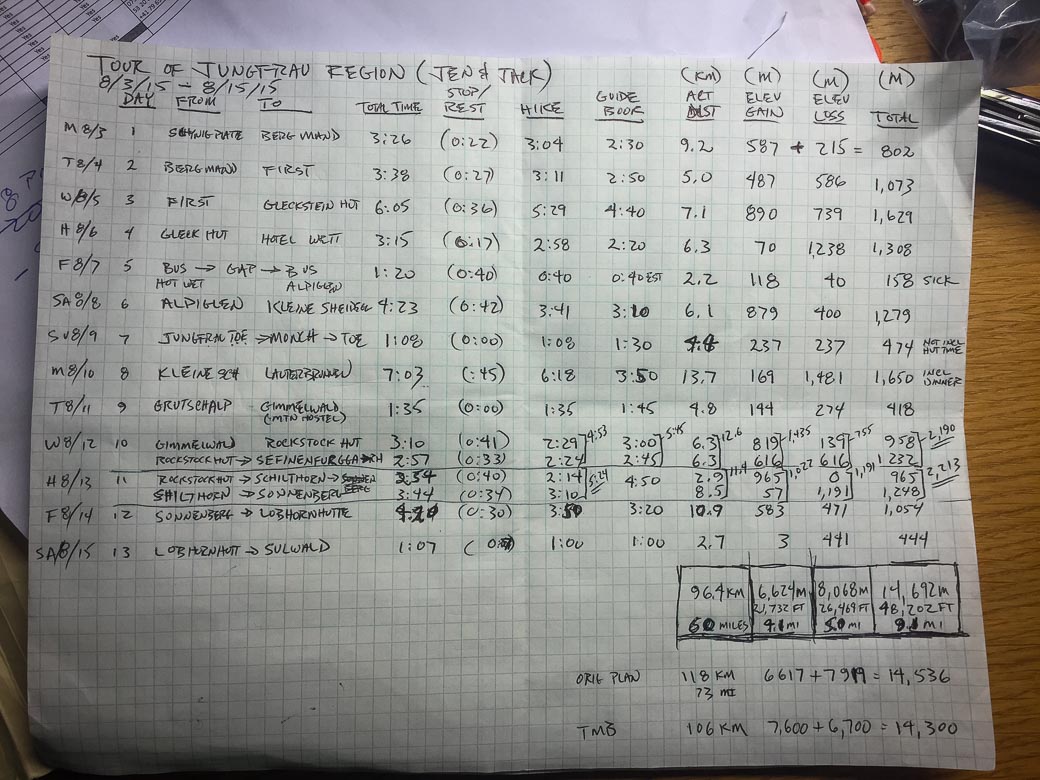 TOUR OF JUNGFRAU REGION (JEN & JACK)
8/3/15 - 8/15/15
DAY FROM TO TOTAL TIME STOP/REST HIKE GUIDE BOOK (KM) ACT DIST (M) ELEV GAIN (M) ELEV LOSS (M) TOTAL
M 8/3 1 SCHNIGPLATE BERG MAND 3:26 (0:22) 3:04 2:30 9.2 587 + 215 = 802
T 8/4 2 BERGMAND FIRST 3:38 (0:27) 3:11 2:50 5.0 487 586 1,073
W 8/5 3 FIRST GLECKSTEIN HUT 6:05 (0:36) 5:29 4:40 7.1 890 739 1,629
H 8/6 4 GLECK HUT HOTEL WETT 3:15 (0:17) 2:58 2:20 6.3 70 1,238 1,308
F 8/7 5 BUS → GAP → BUS 1:20 (0:40) 0:40 0:40 EST 2.2 118 40 158 SICK
HOT WET ALPIGLEN
SA 8/8 6 ALPIGLEN KLEINE SHEIDEGG 4:23 (0:42) 3:41 3:10 6.1 879 400 1,279
SU 8/9 7 JUNGFRAU TOE → MONCH → TOE 1:08 (0:00) 1:08 1:30 237 237 474 NOT INCL HUT TIME
M 8/10 8 KLEINE SCH LAUTERBRUNNEN 7:03 (:45) 6:18 3:50 13.7 169 1,481 1,650 INCL DINNER
T 8/11 9 GRUTSCHALP GIMMELWALD 1:35 (0:00) 1:35 1:45 4.8 144 274 418
(MTN HOSTEL)
W 8/12 10 GIMMELWALD ROCKSTOCK HUT 3:10 (0:41) 2:29 4:53 3:00 5:45 6.3 12.6 819 1,435 139 755 958 2,190
ROCKSTOCKHUT → SEFINENFURGGA → RH 2:57 (0:33) 2:24 2:45 6.3 616 616 1,232
H 8/13 11 ROCKSTOCKHUT → SCHILTHORN → SONNENBERG 2:54 (0:40) 2:14 5:24 4:50 2.9 11.4 965 1,022 0 1,191 965 2,213
SHILTHORN → SONNENBERG 3:44 (0:34) 3:10 8.5 57 1,191 1,248
F 8/14 12 SONNENBERG → LOBHORNHUTTE 4:20 (0:30) 3:50 3:20 10.9 583 471 1,054
SA 8/15 13 LOBHORNHUTT → SULWALD 1:07 1:00 1:00 2.7 3 441 444
96.4 KM 6,624 M 8,068 M 14,692 M
21,732 FT 26,469 FT 48,202 FT
60 MILES 4.1 MI 5.0 MI 9.1 MI
ORIG PLAN 118 KM 6617 + 7919 = 14,536
73 MI
TMB 106 KM 7,600 + 6,700 = 14,300